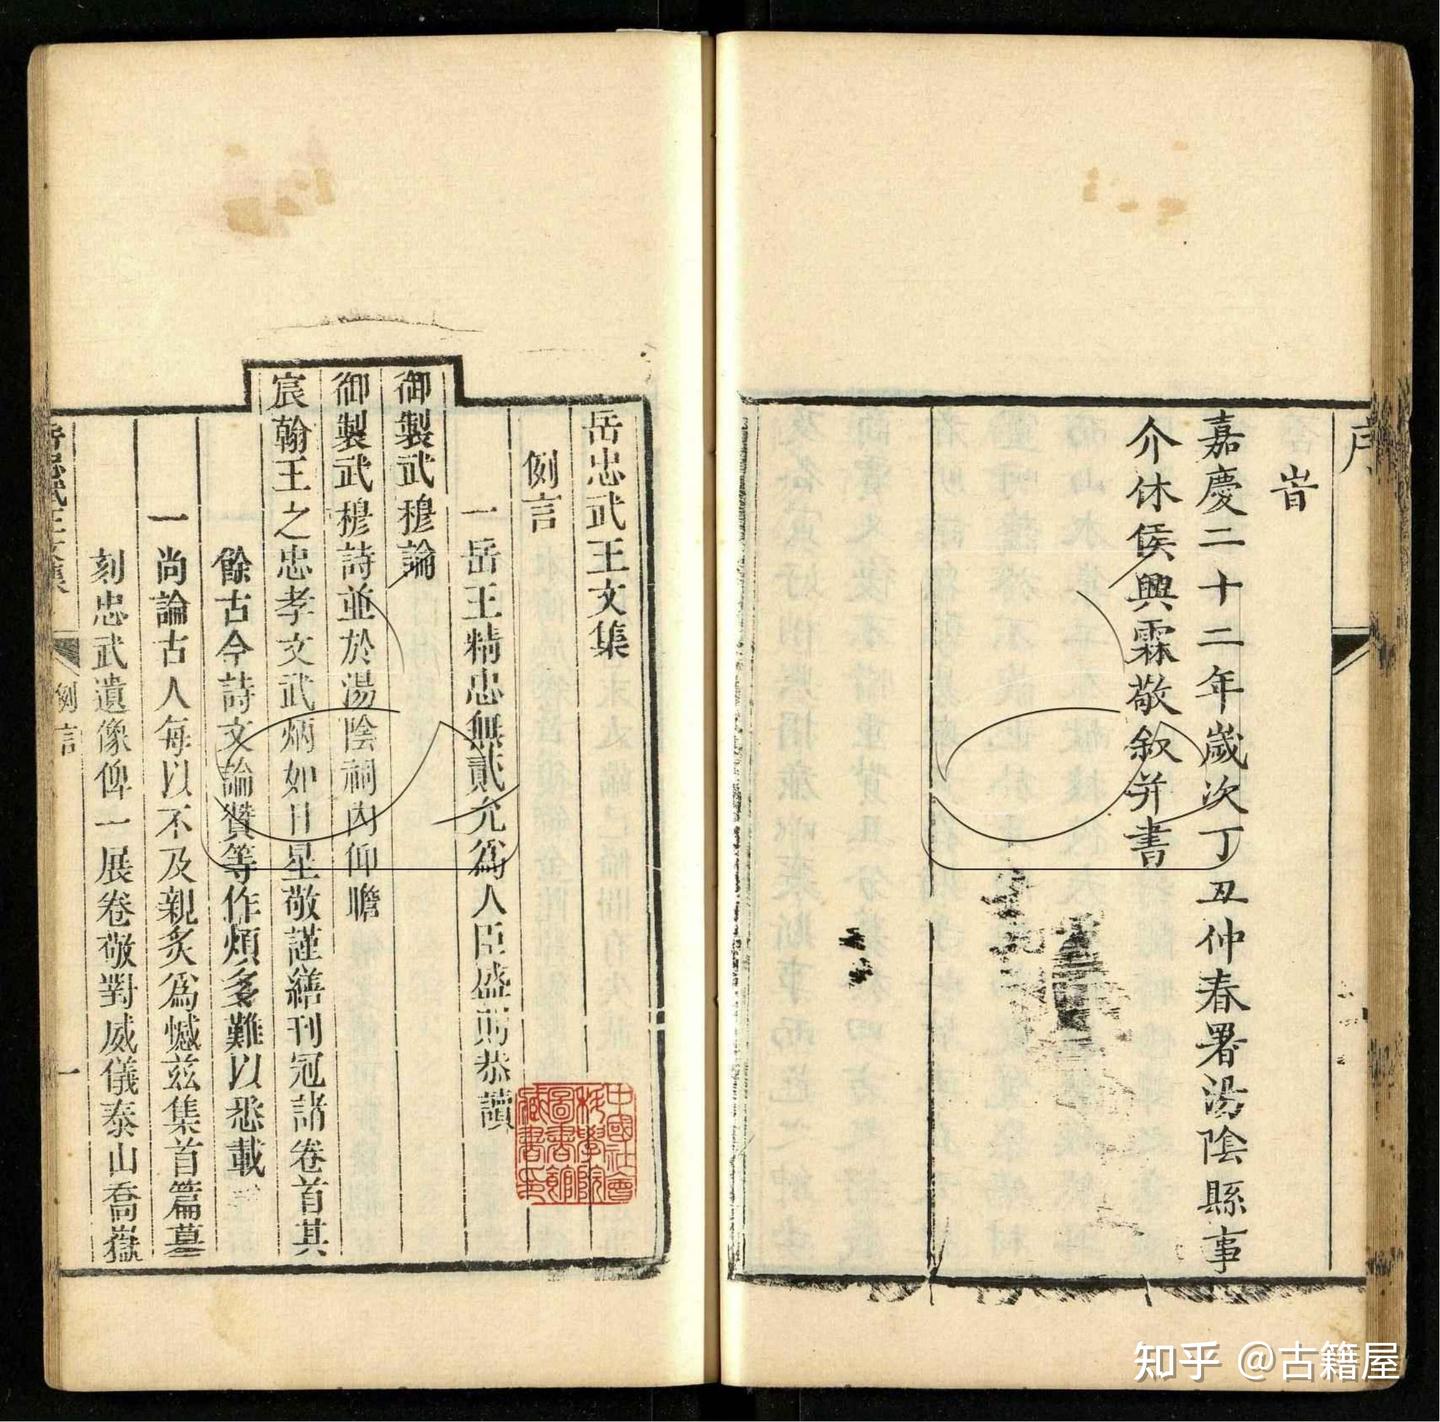 序
旹
嘉慶二十二年歲次丁丑仲春署湯陰縣事
介休侯興霖敬叙并書
岳忠武王文集
例言
一岳王精忠無貳允為人臣盛苐恭讀
御製武穆論
御製武穆詩並於湯陰祠內仰瞻
宸翰王之忠孝文武炳如日星敬謹繕刊冠諸卷首其
餘古今詩文論贊等作煩多難以悉載
一尚論古人每以不及親炙為憾茲集首篇墓
刻忠武遺像俾一展卷敬對威儀泰山喬嶽
岳忠武王文集
例言
一
中國社會
科學院
圖書館
藏書印
知乎 @古籍屋